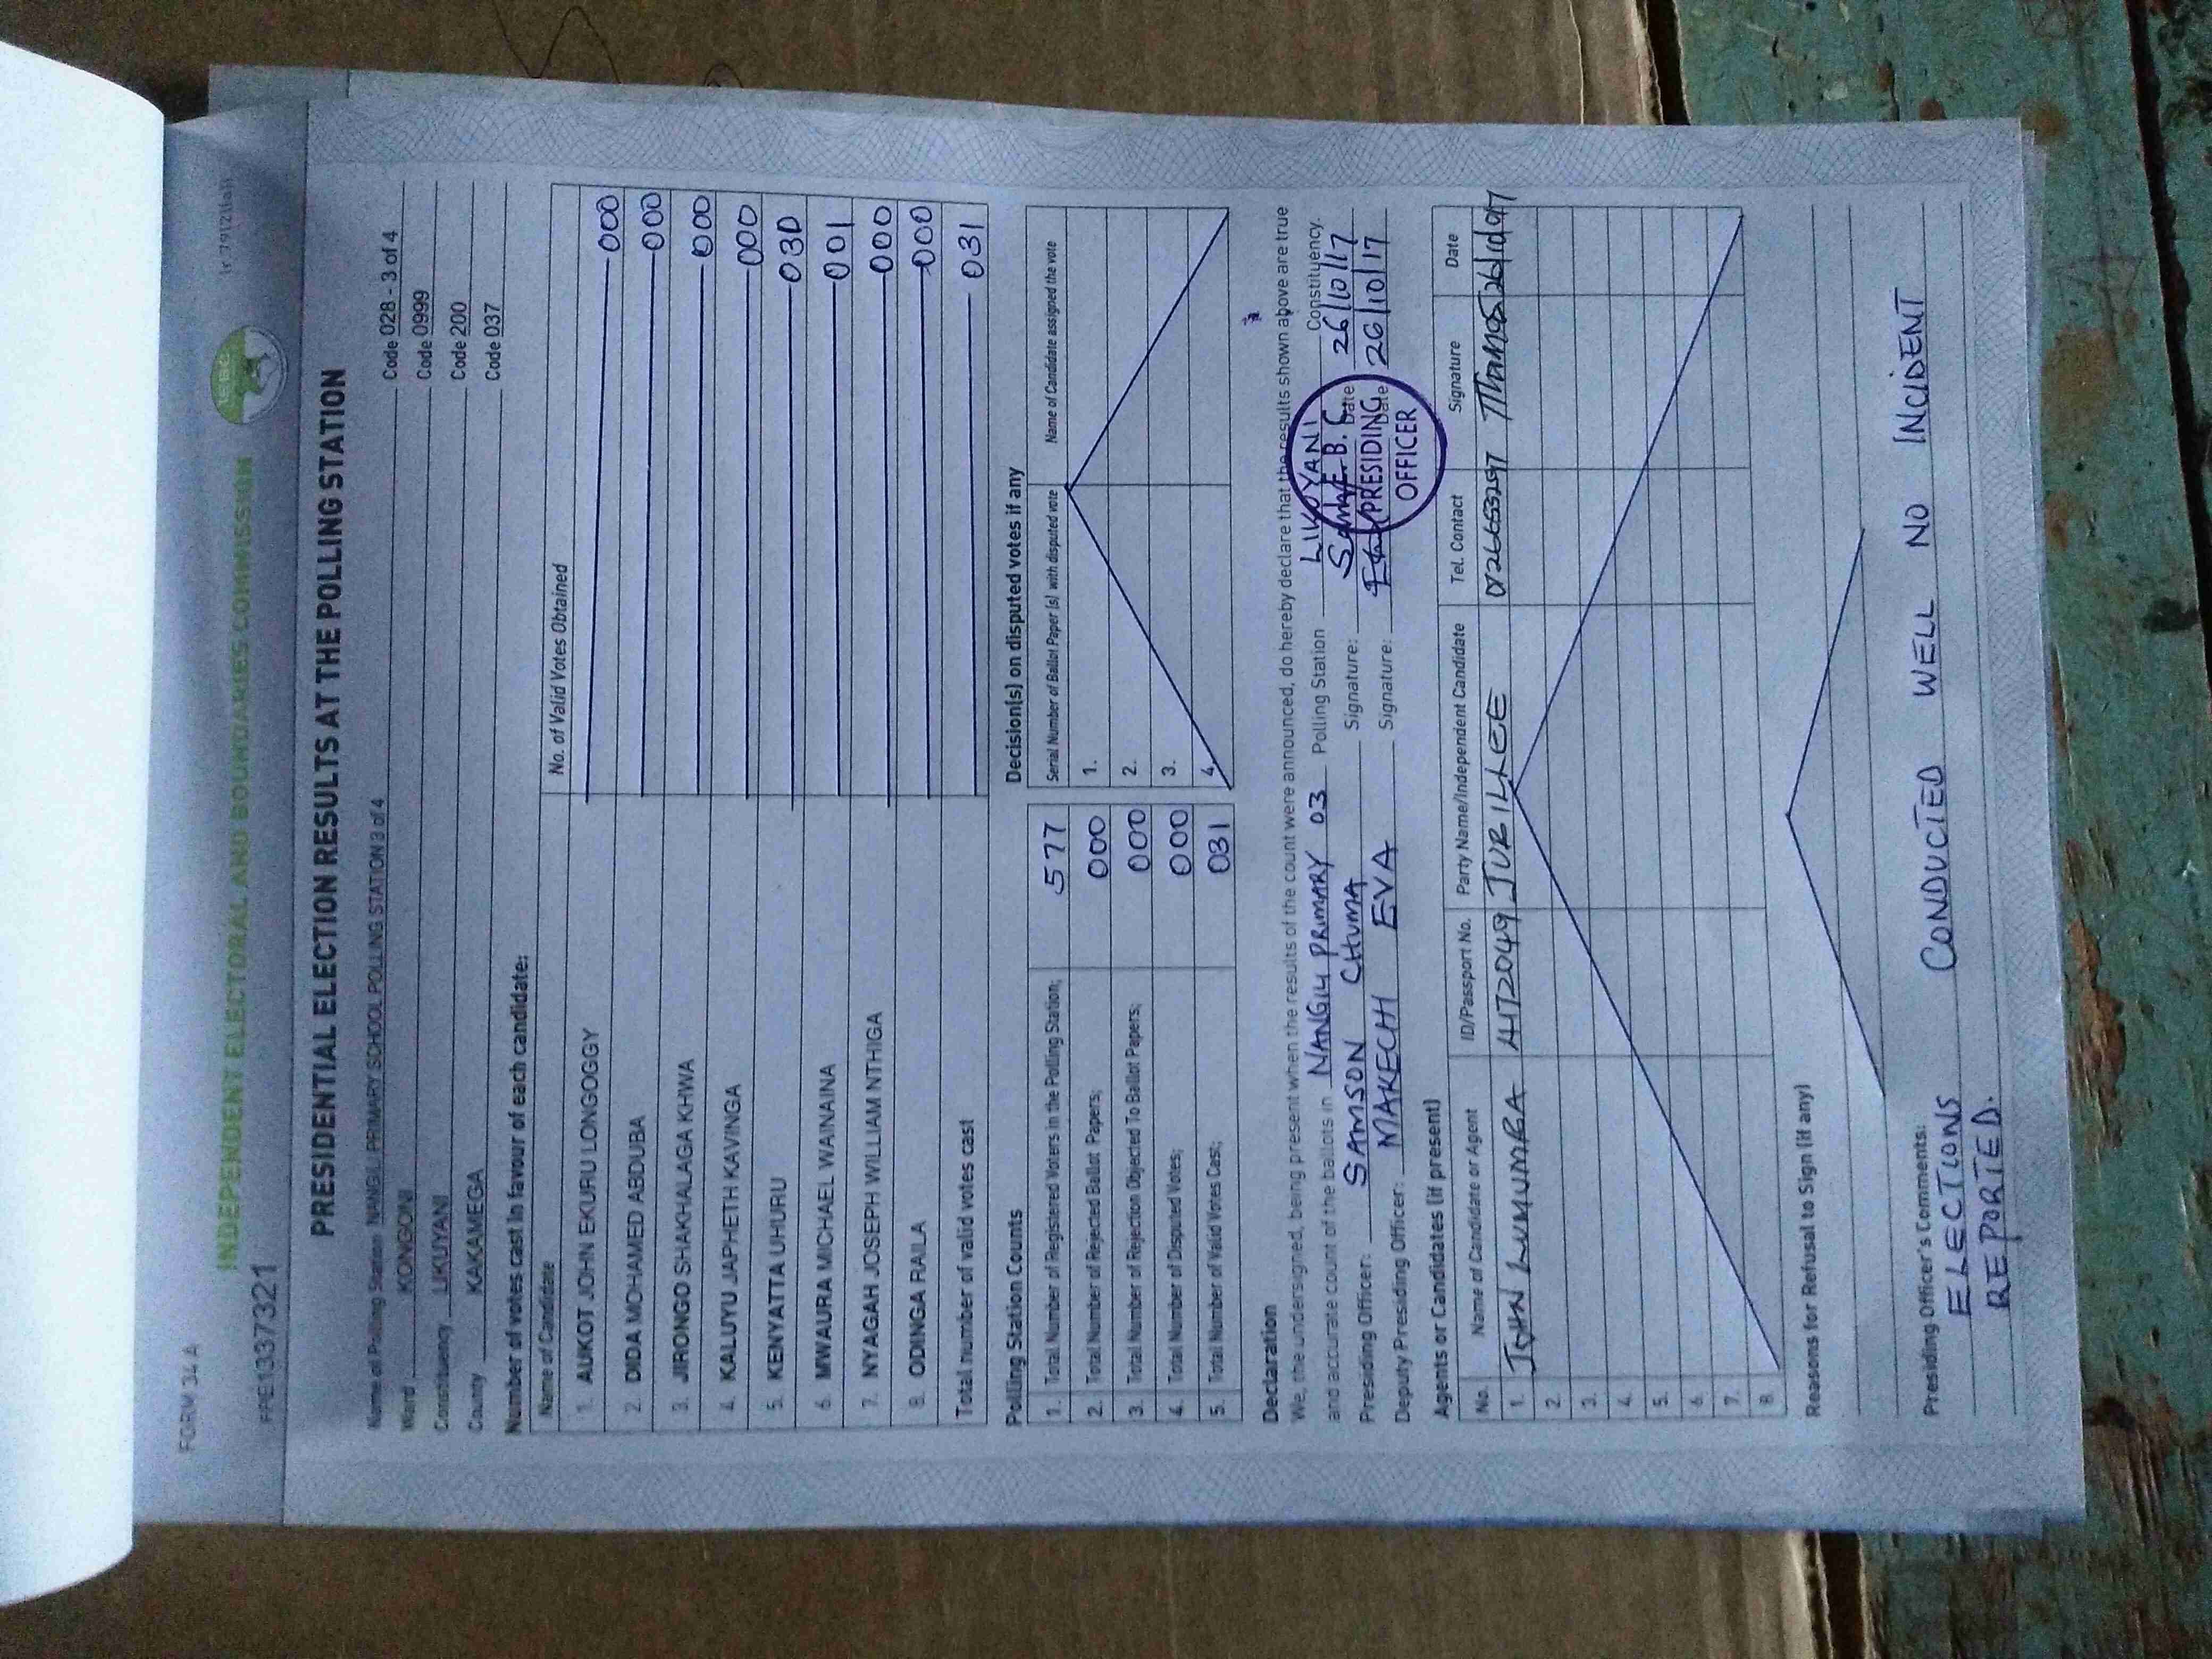 FORM 34 A
INDEPENDENT ELECTORAL AND BOUNDARIES COMMISSION
IEBC
FPE1337321
PRESIDENTIAL ELECTION RESULTS AT THE POLLING STATION
Name of Polling Station NANGILI PRIMARY SCHOOL POLLING STATION 3 of 4 Code 028 - 3 of 4
Ward KONGONI Code 0999
Constituency LIKUYANI Code 200
County KAKAMEGA Code 037
Number of votes cast in favour of each candidate:
Name of Candidate No. of Valid Votes Obtained
1. AUKOT JOHN EKURU LONGOGGY 000
2. DIDA MOHAMED ABDUBA 000
3. JIRONGO SHAKHALAGA KHWA 000
4. KALUYU JAPHETH KAVINGA 000
5. KENYATTA UHURU 030
6. MWAURA MICHAEL WAINAINA 001
7. NYAGAH JOSEPH WILLIAM NTHIGA 000
8. ODINGA RAILA 000
Total number of valid votes cast 031
Polling Station Counts
1. Total Number of Registered Voters in the Polling Station; 577
2. Total Number of Rejected Ballot Papers; 000
3. Total Number of Rejection Objected To Ballot Papers; 000
4. Total Number of Disputed Votes; 000
5. Total Number of Valid Votes Cast; 031
Decision(s) on disputed votes if any
Serial Number of Ballot Paper (s) with disputed vote Name of Candidate assigned the vote
1.
2.
3.
4.
Declaration
We, the undersigned, being present when the results of the count were announced, do hereby declare that the results shown above are true
and accurate count of the ballots in NANGILI PRIMARY 03 Polling Station LIKUYANI Constituency.
Presiding Officer: SAMSON CHUMA Signature: Date 26/10/17
Deputy Presiding Officer: MAKECHI EVA Signature: Date 26/10/17
PRESIDING
OFFICER
Agents or Candidates (if present)
No. Name of Candidate or Agent ID/Passport No. Party Name/Independent Candidate Tel. Contact Signature Date
1. JOHN LUMUMBA JUBILEE
2.
3.
4.
5.
6.
7.
8.
Reasons for Refusal to Sign (if any)
Presiding Officer's Comments:
ELECTIONS CONDUCTED WELL NO INCIDENT
REPORTED.